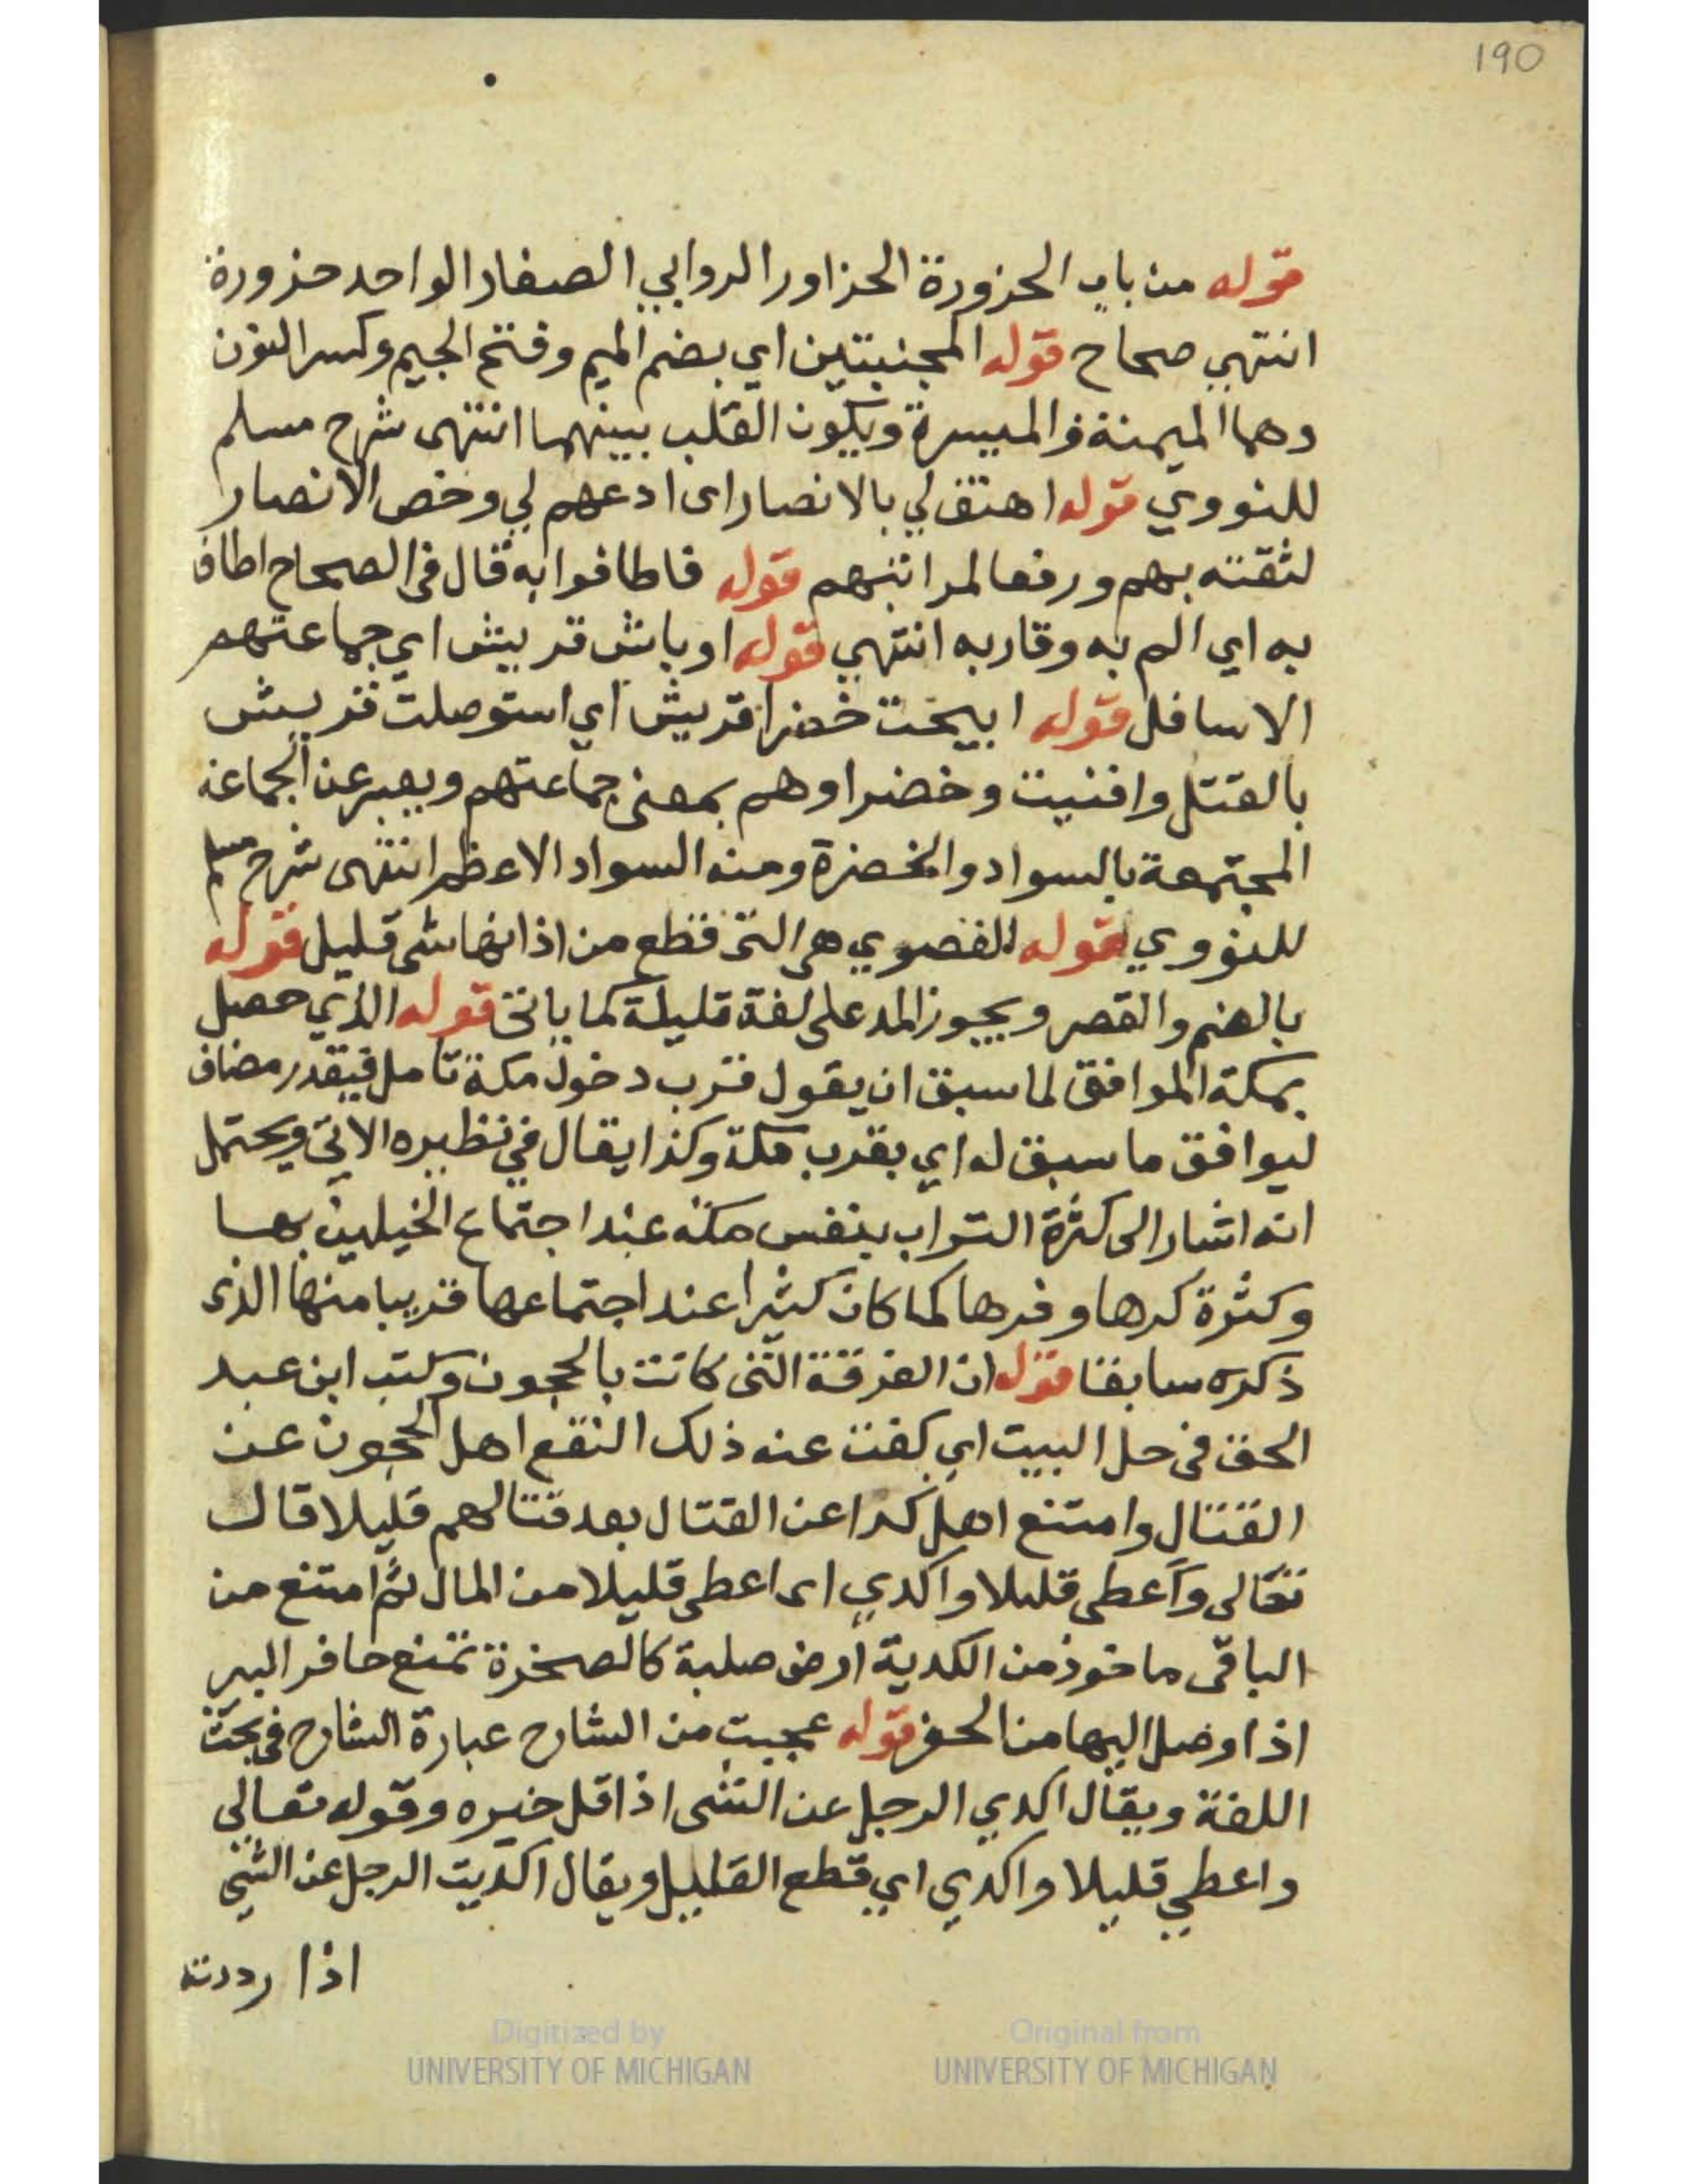 190
قوله من باب الحزورة الحزاور الروابي الصغار الواحد حزورة
انتهي صحاح قوله المجنبتين اي بضم الميم وفتح الجيم وكسر النون
وهما الميمنة والميسرة ويكون القلب بينهما انتهى شرح مسلم
للنووي قوله اهتف لي بالانصار اى ادعهم لي وخص الانصار
لثقته بهم ورفعا لمراتبهم قوله فاطافوا به قال فى الصحاح اطاف
به اي الم به وقاربه انتهي قوله اوباش قريش اي جماعتهم
الاسافل قوله ابيحت خضرا قريش اي استوصلت قريش
بالقتل وافنيت وخضراوهم بمعنى جماعتهم ويعبر عن الجماعة
المجتمعة بالسواد والخضرة ومنه السواد الاعظم انتهى شرح مسلم
للنووي قوله القصوي هى التى قطع من اذانها شى قليل قوله
بالضم والقصر ويجوز المد على لغة قليلة كما ياتى قوله الذي حصل
بمكة الموافق لما سبق ان يقول قرب دخول مكة تامل فيقدر مضاف
ليوافق ما سبق له اي بقرب مكة وكذا يقال في نظيره الاتي ويحتمل
انه اشار الى كثرة التراب بنفس مكة عند اجتماع الخيلين بها
وكثرة كرها وفرها كما كان كثيرا عند اجتماعها قريبا منها الذى
ذكره سابقا قوله ان الفرقة التى كانت بالحجون وكتب ابن عبد
الحق فى حل البيت اي كفت عنه ذلك النقع اهل الحجون عن
القتال وامتنع اهل كدا عن القتال بعد قتالهم قليلا قال
تعالى وأعطى قليلا واكدي اى اعطى قليلا من المال ثم امتنع من
الباقى ماخوذ من الكدية ارض صلبة كالصخرة تمنع حافر البير
اذا وصل اليها من الحفر قوله عجبت من الشارح عبارة الشارح فى بحث
اللغة ويقال اكدي الرجل عن الشى اذا قل خيره وقوله تعالى
واعطي قليلا واكدي اي قطع القليل ويقال اكديت الرجل عن الشي
اذا رددته
Digitized by
UNIVERSITY OF MICHIGAN
Original from
UNIVERSITY OF MICHIGAN